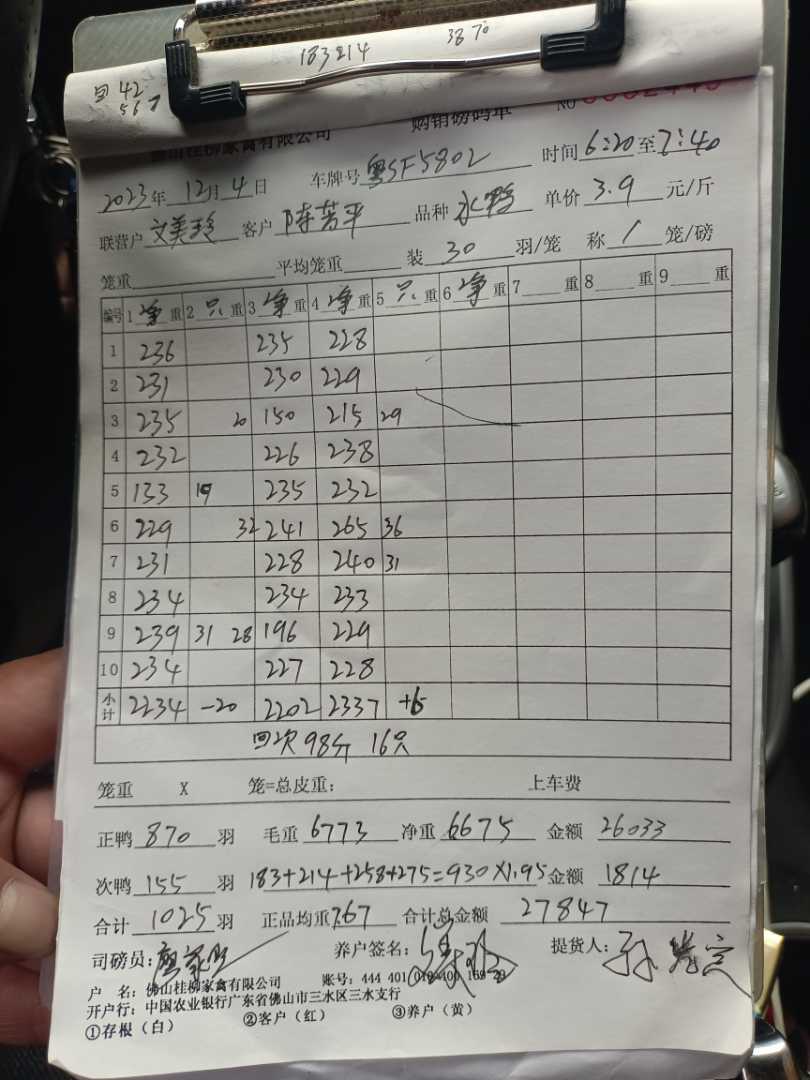 183214 3870
回42
567
佛山桂柳家禽有限公司 购销磅码单 NO
2023年 12月 4日 车牌号 粤SF5802 时间 6:20 至 7:40
联营户 文美玲 客户 陈芳平 品种 水鸭 单价 3.9 元/斤
笼重 平均笼重 装 30 羽/笼 称 1 笼/磅
编号 1 净 重 2 只 重 3 净 重 4 净 重 5 只 重 6 净 重 7 重 8 重 9 重
1 236 235 228
2 231 230 229
3 235 20 150 215 29
4 232 226 238
5 133 19 235 232
6 229 32 241 265 36
7 231 228 240 31
8 234 234 233
9 239 31 28 196 229
10 234 227 228
小计 2234 -20 2202 2337 +6
回次98斤 16只
笼重 X 笼=总皮重: 上车费
正鸭 870 羽 毛重 6773 净重 6675 金额 26033
次鸭 155 羽 183+214+258+275=930×1.95 金额 1814
合计 1025 羽 正品均重 7.67 合计总金额 27847
司磅员: 养户签名: 提货人:
户 名: 佛山桂柳家禽有限公司 账号: 444 401
开户行: 中国农业银行广东省佛山市三水区三水支行
①存根(白) ②客户(红) ③养户(黄)